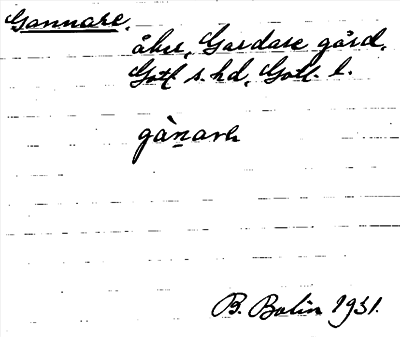 Gannare.
åker, Gardare gård,
Gotl s. hd, Gotl. l.
gàn̲arɛ
B. Bolin 1931.